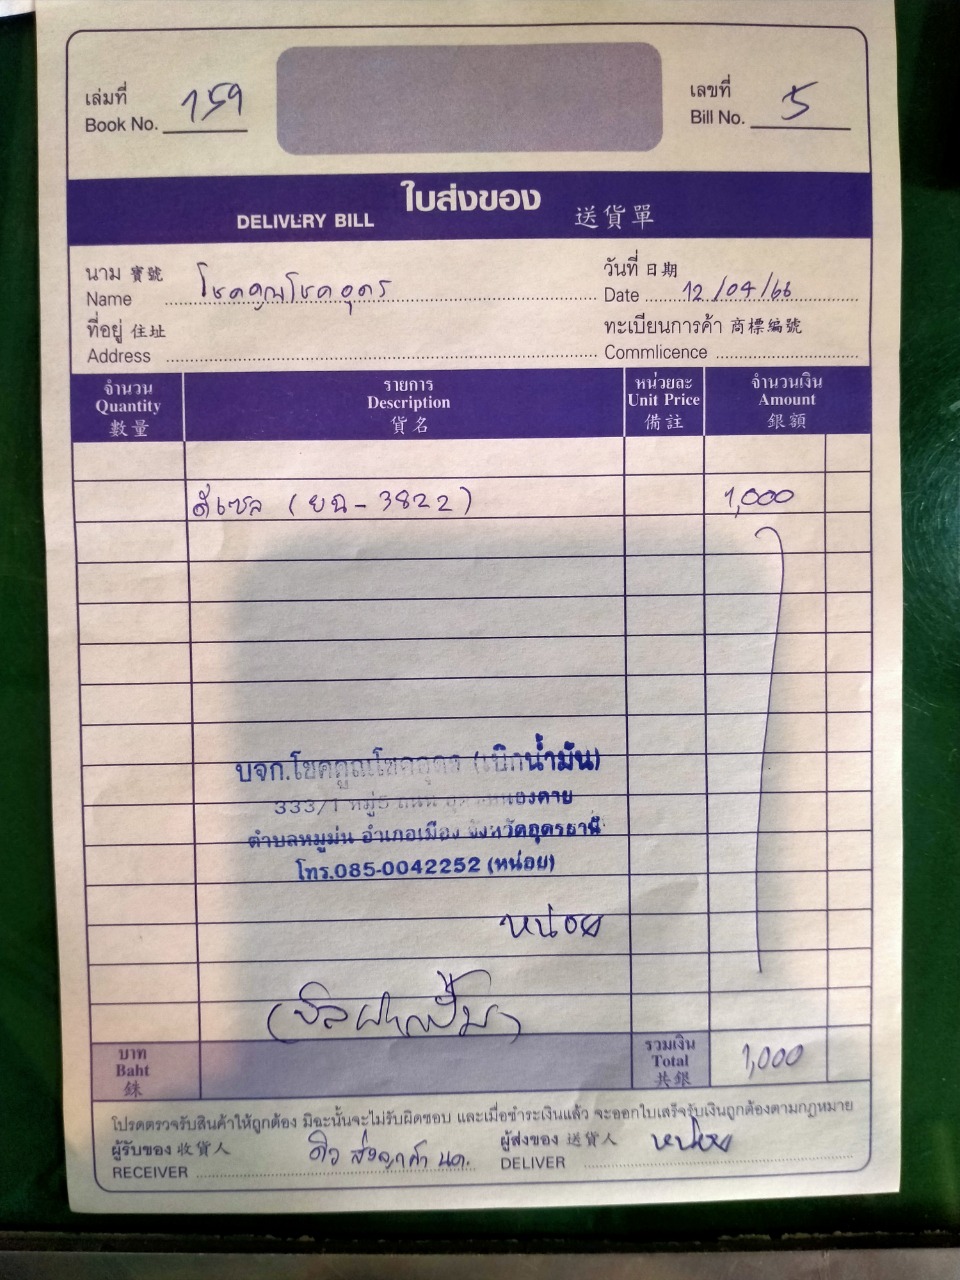 เล่มที่ 159 เลขที่ 5
Book No. Bill No.
ใบส่งของ
DELIVERY BILL 送貨單
นาม 寶號 โชคคูณโชคอุดร วันที่ 日期
Name Date 12/04/66
ที่อยู่ 住址 ทะเบียนการค้า 商標編號
Address Commlicence
จำนวน รายการ หน่วยละ จำนวนเงิน
Quantity Description Unit Price Amount
數量 貨名 備註 銀額
ดีเซล (ยฉ-3822) 1,000
บจก.โชคคูณโชคอุดร (เบิกน้ำมัน)
333/1 หมู่5 ถนน หนองคาย
ตำบลหมูม่น อำเภอเมือง จังหวัดอุดรธานี
โทร.085-0042252 (หน่อย)
หน่อย
(บิลฝากปั๊ม)
บาท รวมเงิน
Baht Total 1,000
銖 共銀
โปรดตรวจรับสินค้าให้ถูกต้อง มิฉะนั้นจะไม่รับผิดชอบ และเมื่อชำระเงินแล้ว จะออกใบเสร็จรับเงินถูกต้องตามกฎหมาย
ผู้รับของ 收貨人 ผู้ส่งของ 送貨人 หน่อย
RECEIVER DELIVER